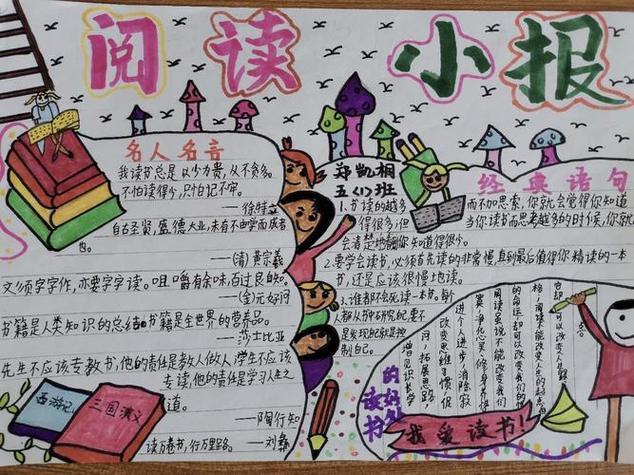 阅读小报
名人名言
我读书总是以少为贵,从不贪多。
不怕读得少,只怕记不牢。
——徐特立
自古圣贤,盛德大业,未有不由学而成者
也。
——(清)黄宗羲
文须字字作,亦要字字读。咀嚼有余味,百过良自知。
——(金)元好问
书籍是人类知识的总结,书籍是全世界的营养品。
——莎士比亚
先生不应该专教书,他的责任是教人做人;学生不应该
专读书,他的责任是学习人生之
道。
——陶行知
读万卷书,行万里路。——刘彝
西游记
三国演义
郑凯桐
五(1)班
经典语句
1.书读的越多
而不加思索,你就会觉得你知道
得很多,但
当你读书而思考越多的时候,你就
会清楚地
你知道得很少。
2.要学会读书,必须首先读的非常慢,直到最后值得你精读的一本
书,还是应该很慢地读。
3.谁都不会死读一本书。每
都从书中研究
是发现
制自己。
读书
的好处
阅读不能改变人生的
可以改变人生的
改变我们的
不能改变我们
净化心灵,修身养性
进步,消除寂
改变思维习惯,促
拓展思路,
增见识长学
我爱读书!